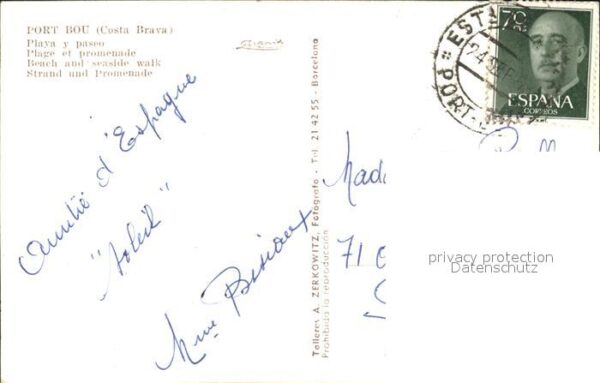 PORT BOU (Costa Brava)
Playa y paseo
Plage et promenade
Beach and seaside walk
Strand und Promenade
Amitié d'Espagne
"Soleil"
Mme
Talleres A. ZERKOWITZ, Fotógrafo - Tel. 21 42 55 - Barcelona
Prohibida la reproducción
70
ESPAÑA
CORREOS
PORT-
Mada
71
privacy protection
Datenschutz